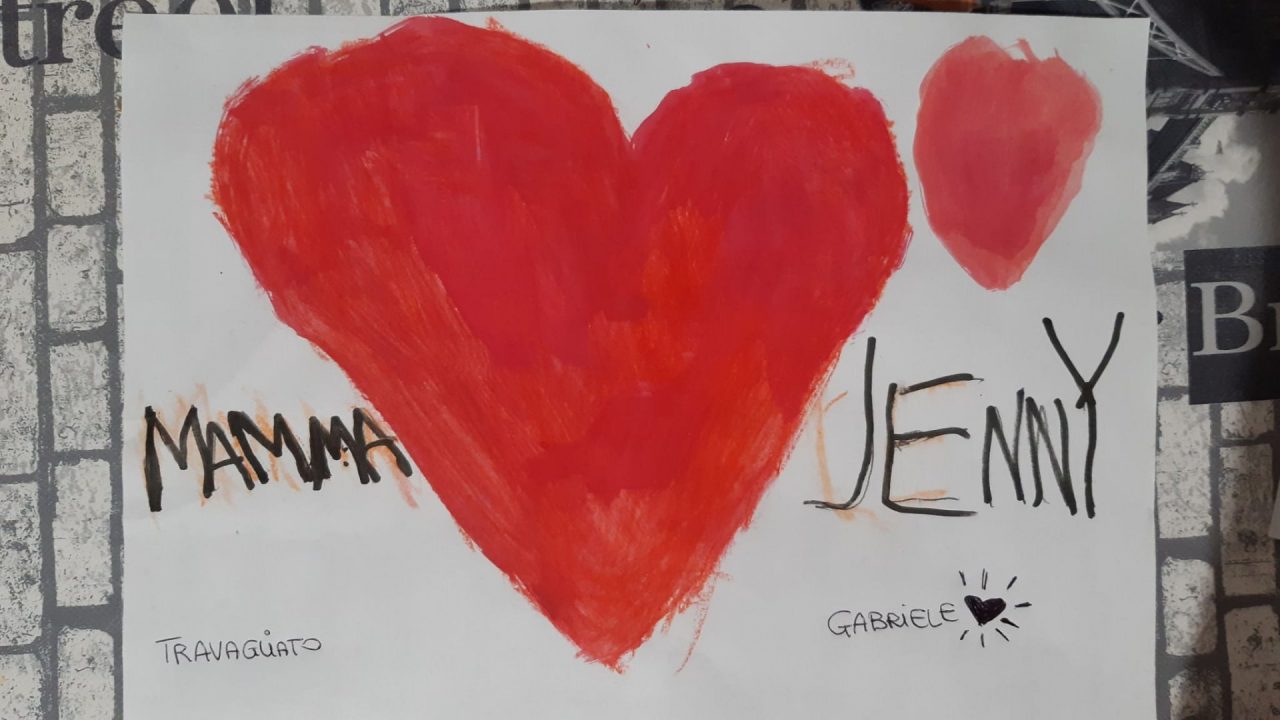 tree
MAMMA
JENNY
GABRIELE
TRAVAGLIATO